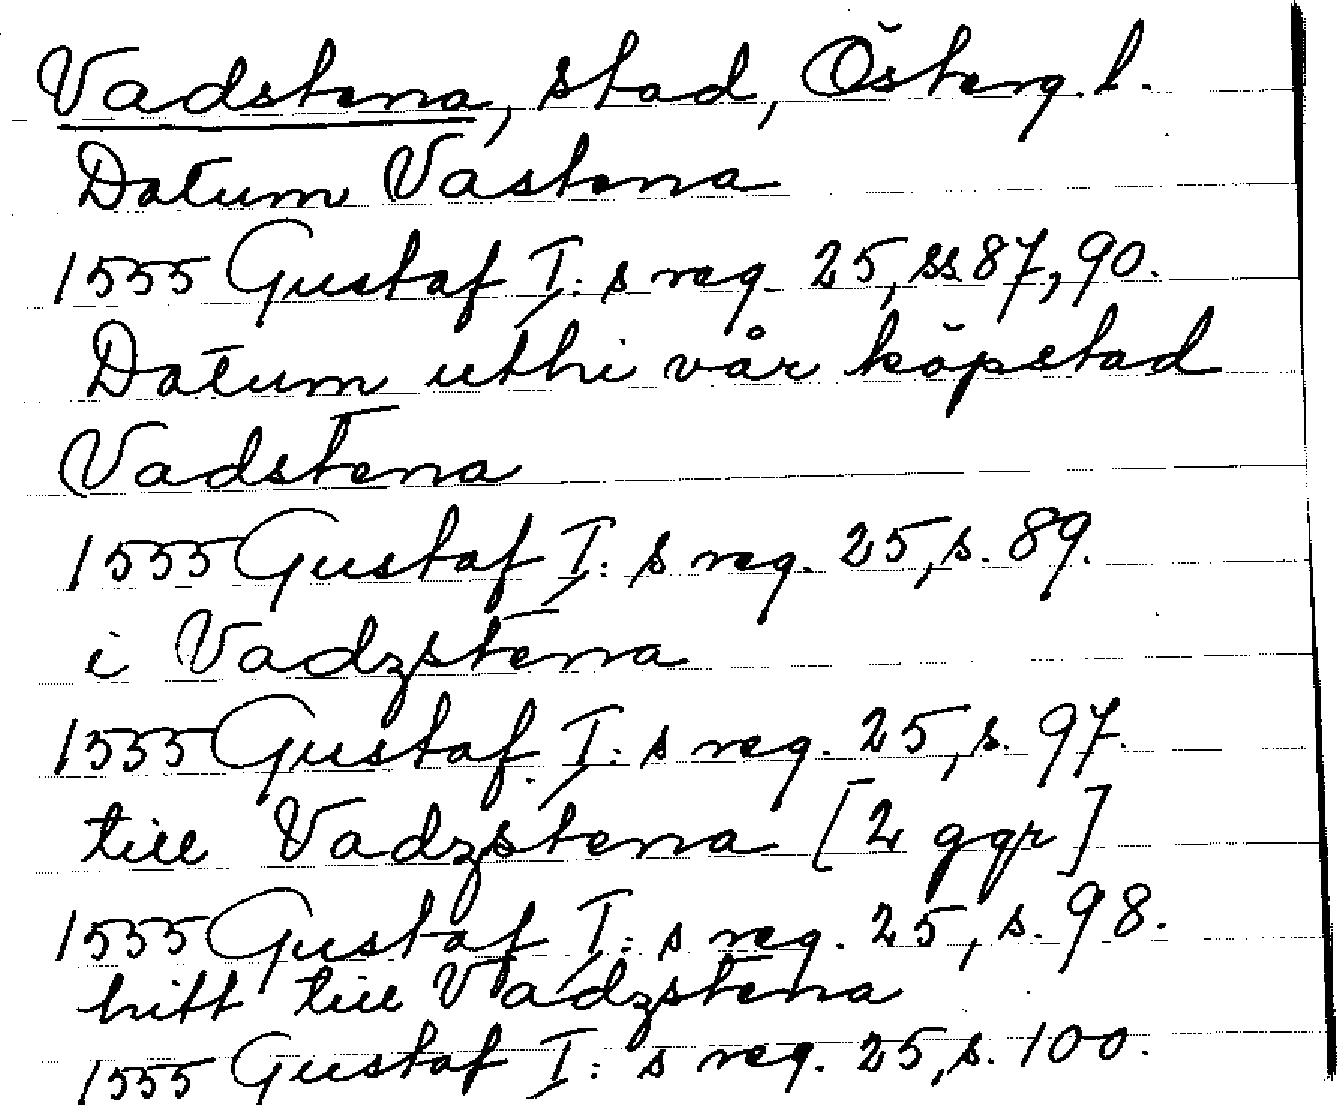 Vadstena, stad, Österg. l.
Datum Vastena
1555 Gustaf I: s reg. 25, ss. 87, 90.
Datum uthi vår köpstad
Vadstena
1555 Gustaf I: s reg. 25, s. 89.
i Vadzstena
1555 Gustaf I: s reg. 25, s. 97.
till Vadzstena [2 ggr]
1555 Gustaf I: s reg. 25, s. 98.
hitt till Vadzstena
1555 Gustaf I: s reg. 25, s. 100.